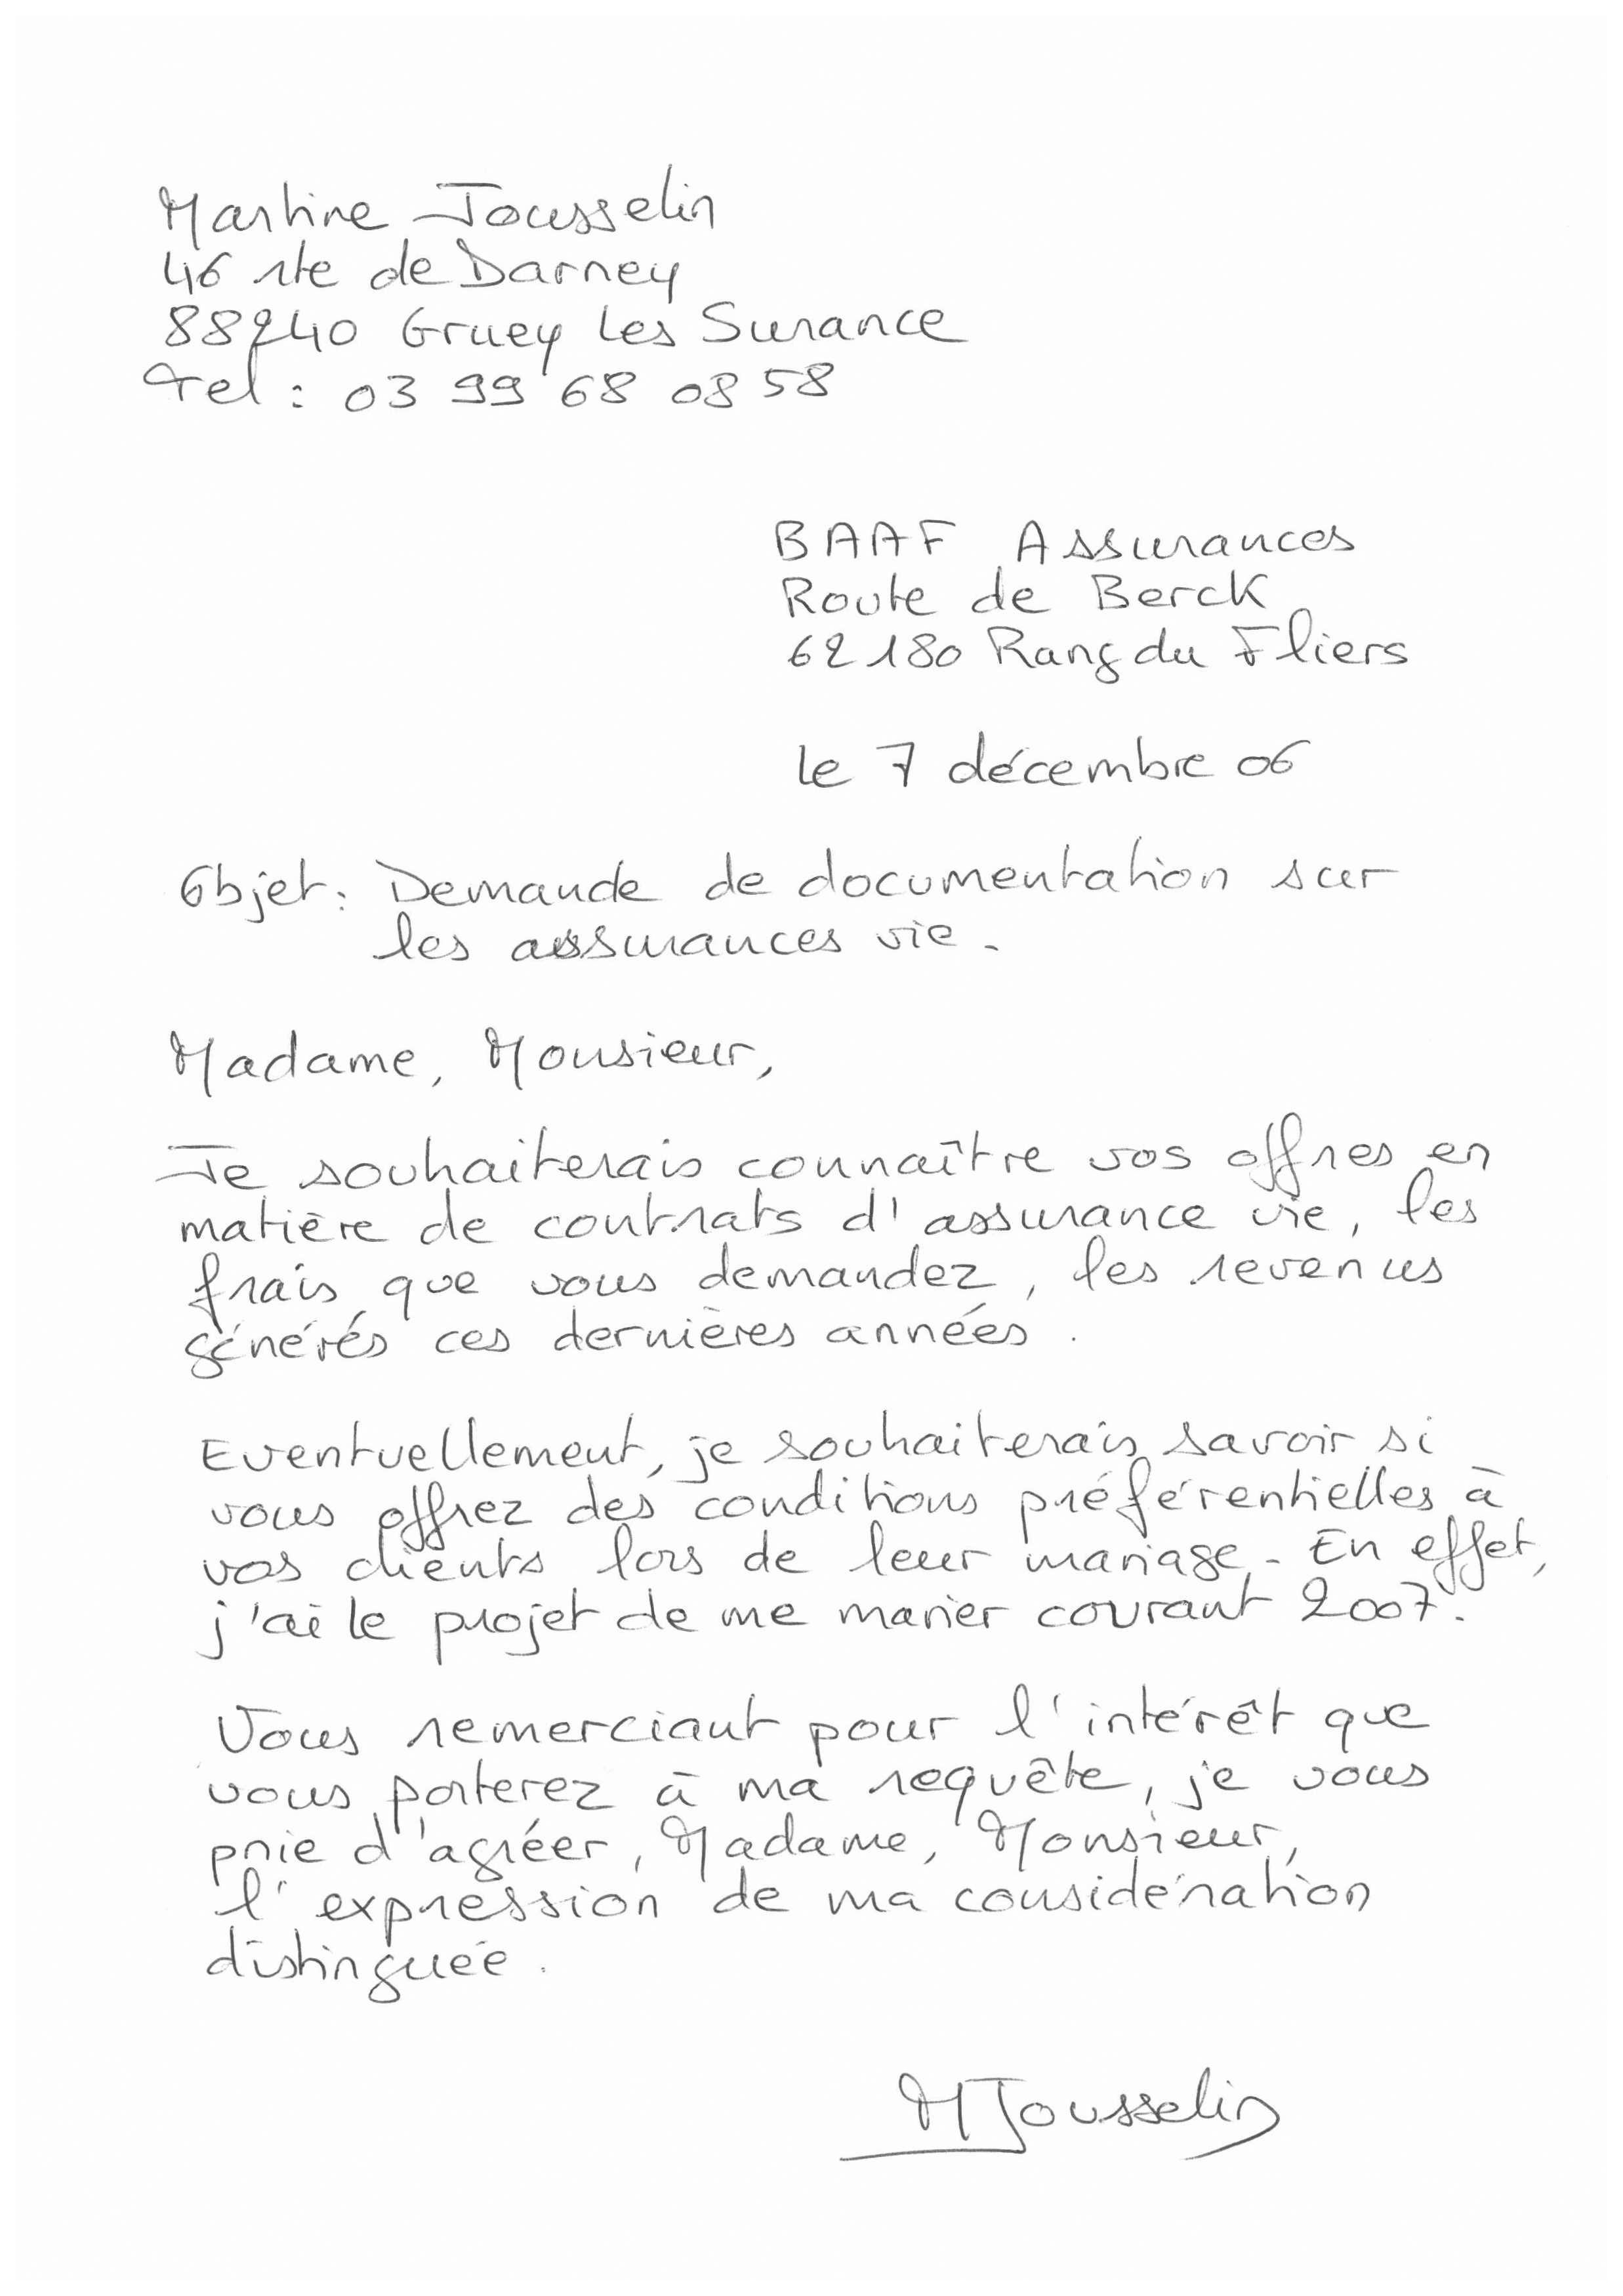 Martine Jousselin
46 rte de Darney
88240 Gruey les Surance
Tel : 03 99 68 08 58
BAAF Assurances
Route de Berck
62180 Rang du Fliers
le 7 décembre 06
Objet : Demande de documentation sur
les assurances vie.
Madame, Monsieur,
Je souhaiterais connaître vos offres en
matière de contrats d'assurance vie, les
frais que vous demandez, les revenus
générés ces dernières années.
Eventuellement, je souhaiterais savoir si
vous offrez des conditions préférentielles à
vos clients lors de leur mariage. En effet,
j'ai le projet de me marier courant 2007.
Vous remerciant pour l'intérêt que
vous porterez à ma requête, je vous
prie d'agréer, Madame, Monsieur,
l'expression de ma considération
distinguée.
MJousselin